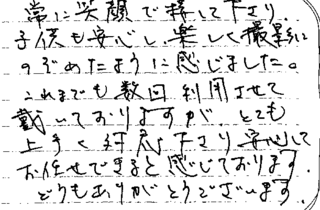 常に笑顔で接して下さり、
子供も安心し楽しく撮影に
のぞめたように感じました。
これまでも数回利用させて
戴いておりますが、とても
上手く対応下さり安心して
お任せできると感じております。
どうもありがとうございます。